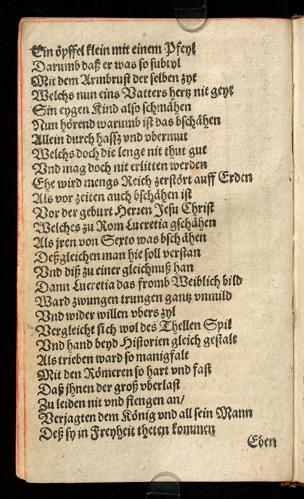 Ein öpffel klein mit einem Pfeyl
Darumb daß er was so subtyl
Mit dem Armbrust der selben zyt
Welchs nun eins Vatters hertz nit geyt
Sin eygen Kind also schmähen
Nun hörend warumb ist das bschähen
Allein durch hassz vnd vbermut
Welchs doch die lenge nit thut gut
Vnd mag doch nit erlitten werden
Ehe wird mengs Reich zerstört auff Erden
Als vor zeiten auch bschähen ist
Vor der geburt Herzen Jesu Christ
Welches zu Rom Lucretia gschähen
Als jren von Sexto was bschähen
Deßgleichen man hie soll verstan
Vnd diß zu einer gleichnuß han
Dann Lucretia das fromb Weiblich bild
Ward zwungen trungen gantz vnmild
Vnd wider willen vbers zyl
Vergleicht sich wol des Thellen Spil
Vnd hand beyd Historien gleich gestalt
Als trieben ward so manigfalt
Mit den Römeren so hart vnd fast
Daß jhnen der groß vberlast
Zu leiden nit vnd fiengen an/
Verjagten dem König vnd all sein Mann
Deß sy in Freyheit theten kommen
Eben